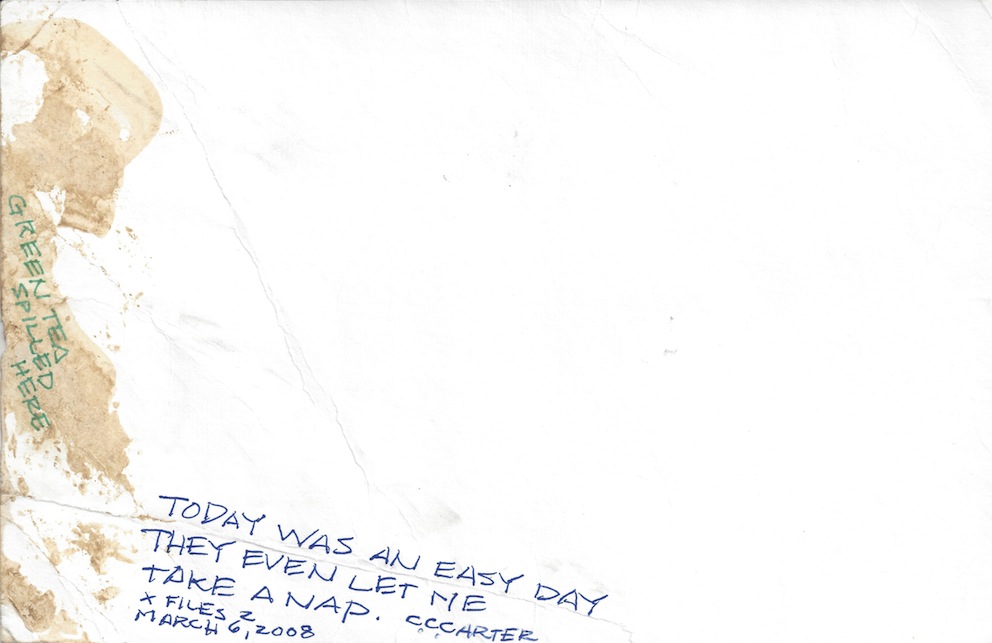 GREEN TEA
SPILLED
HERE
TODAY WAS AN EASY DAY
THEY EVEN LET ME
TAKE A NAP. CCCARTER
X FILES 2
MARCH 6, 2008